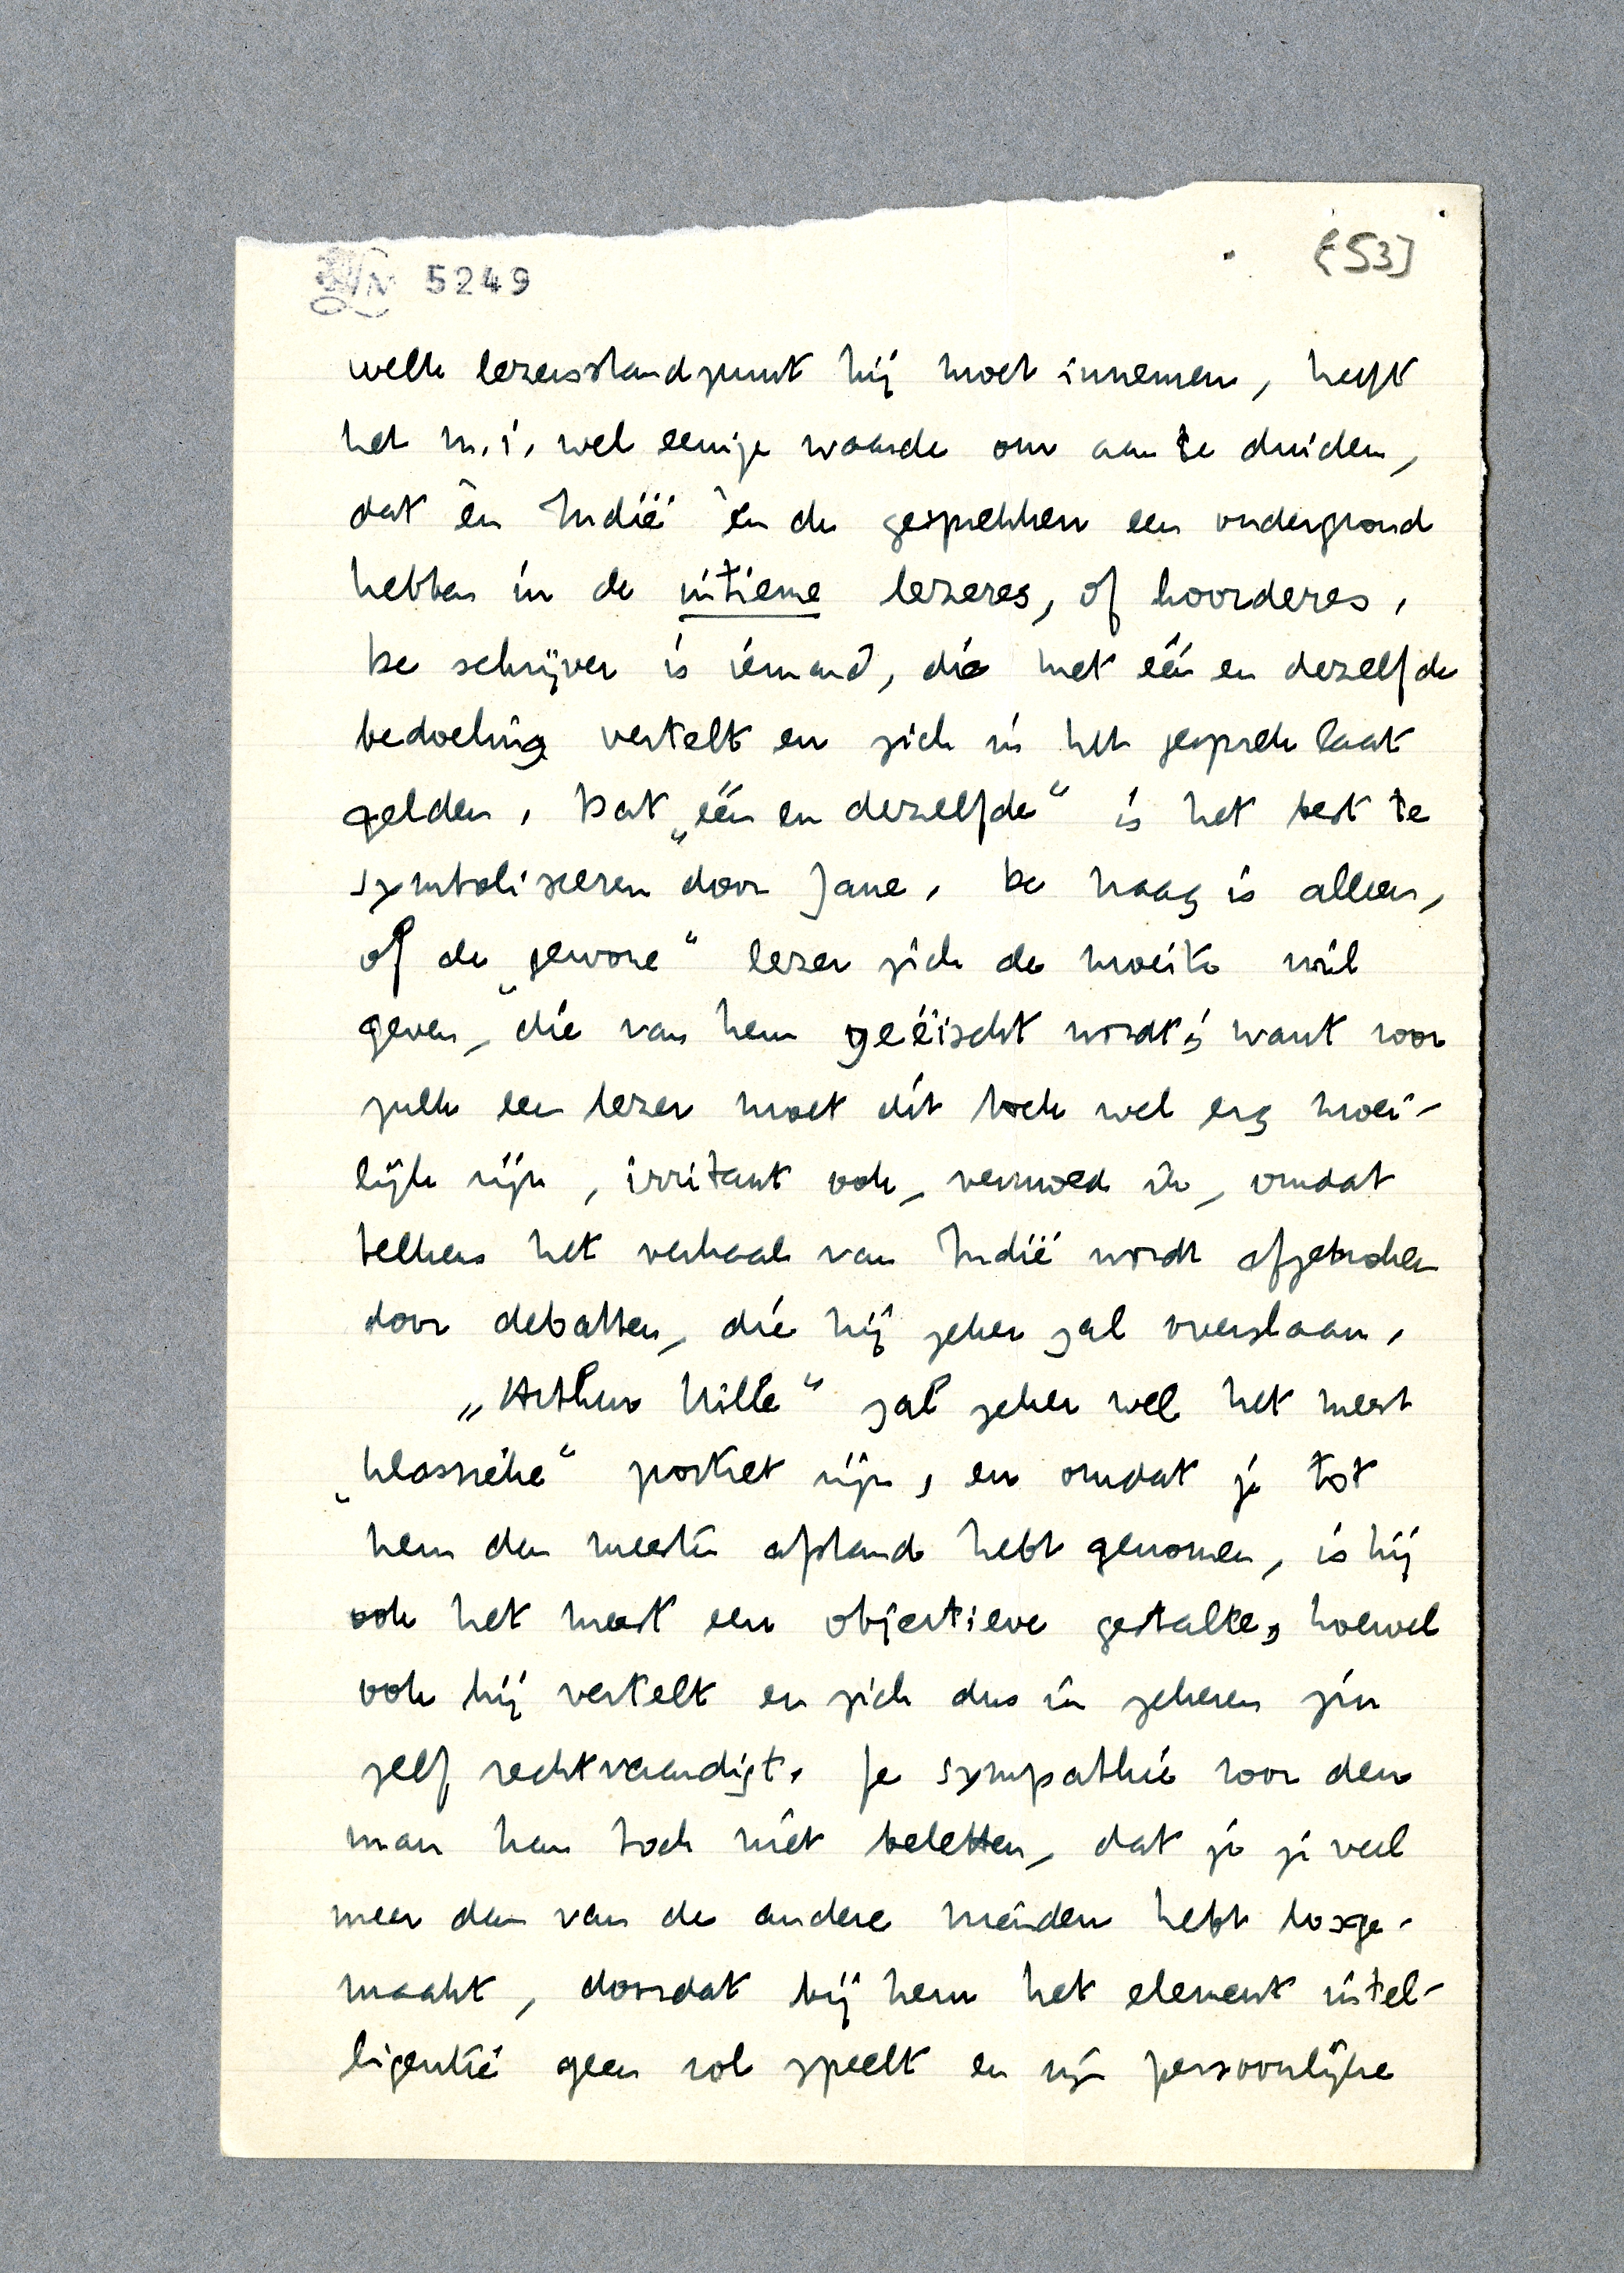 5249
[53]
welk lezersstandpunt hij moet innemen, heeft
het m.i. wel eenige waarde om aan te duiden,
dat èn Indië èn de gesprekken een ondergrond
hebben in de intieme lezeres, of hoorderes.
De schrijver is iemand, die met één en dezelfde
bedoeling vertelt en zich in het gesprek laat
gelden. Dat „één en dezelfde” is het best te
symboliseeren door Jane. De vraag is alleen,
of de „gewone” lezer zich de moeite wil
geven, die van hem geëischt wordt; want voor
zulk een lezer moet dit toch wel erg moei-
lijk zijn, irritant ook, vermoed ik, omdat
telkens het verhaal van Indië wordt afgebroken
door debatten, die hij zeker zal overslaan.
„Arthur Hille” zal zeker wel het meest
„klassieke” portret zijn, en omdat je tot
hem den meesten afstand hebt genomen, is hij
ook het meest een objectieve gestalte, hoewel
ook hij vertelt en zich dus in zekeren zin
zelf rechtvaardigt. Je sympathie voor den
man kan toch niet beletten, dat je je veel
meer dan van de andere vrienden hebt losge-
maakt, doordat bij hem het element intel-
ligentie geen rol speelt en zijn persoonlijke